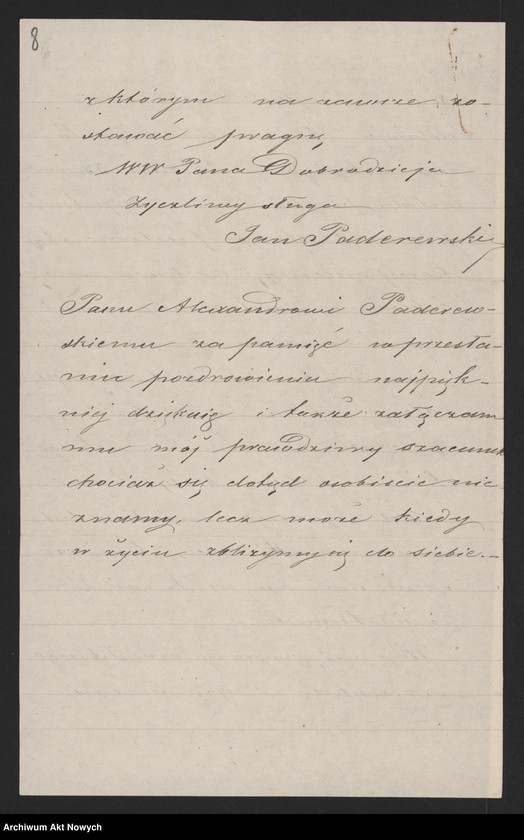 8
z którym na zawsze zo-
stawać pragnę
WW Pana Dobrodzieja
życzliwy sługa
Jan Paderewski
Panu Alexandrowi Paderew-
skiemu za pamięć w przesła-
niu pozdrowieniu najpięk-
niej dziękuję i także załączam
mu mój prawdziwy szacunek
chociaż się dotąd osobiście nie
znamy, lecz może kiedy
w życiu zbliżymy się do siebie.—
Archiwum Akt Nowych